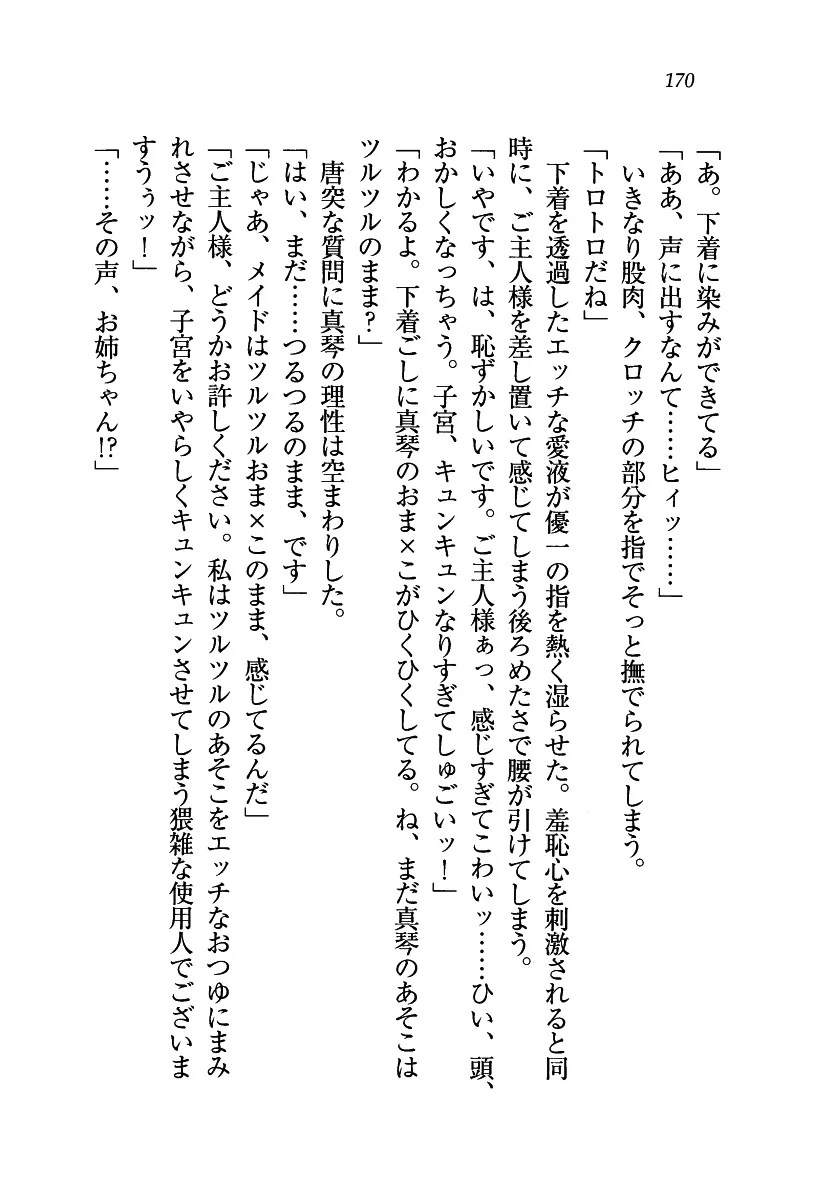 170
「あ。下着に染みができてる」
「ああ、声に出すなんて……ヒィッ……」
いきなり股肉、クロッチの部分を指でそっと撫でられてしまう。
「トロトロだね」
下着を透過したエッチな愛液が優一の指を熱く湿らせた。羞恥心を刺激されると同
時に、ご主人様を差し置いて感じてしまう後ろめたさで腰が引けてしまう。
「いやです、は、恥ずかしいです。ご主人様ぁっ、感じすぎてこわいッ……ひい、頭、
おかしくなっちゃう。子宮、キュンキュンなりすぎてしゅごいッ！」
「わかるよ。下着ごしに真琴のおま×こがひくひくしてる。ね、まだ真琴のあそこは
ツルツルのまま？」
唐突な質問に真琴の理性は空まわりした。
「はい、まだ……つるつるのまま、です」
「じゃあ、メイドはツルツルおま×このまま、感じてるんだ」
「ご主人様、どうかお許しください。私はツルツルのあそこをエッチなおつゆにまみ
れさせながら、子宮をいやらしくキュンキュンさせてしまう猥雑な使用人でございま
すうぅッ！」
「……その声、お姉ちゃん!?」